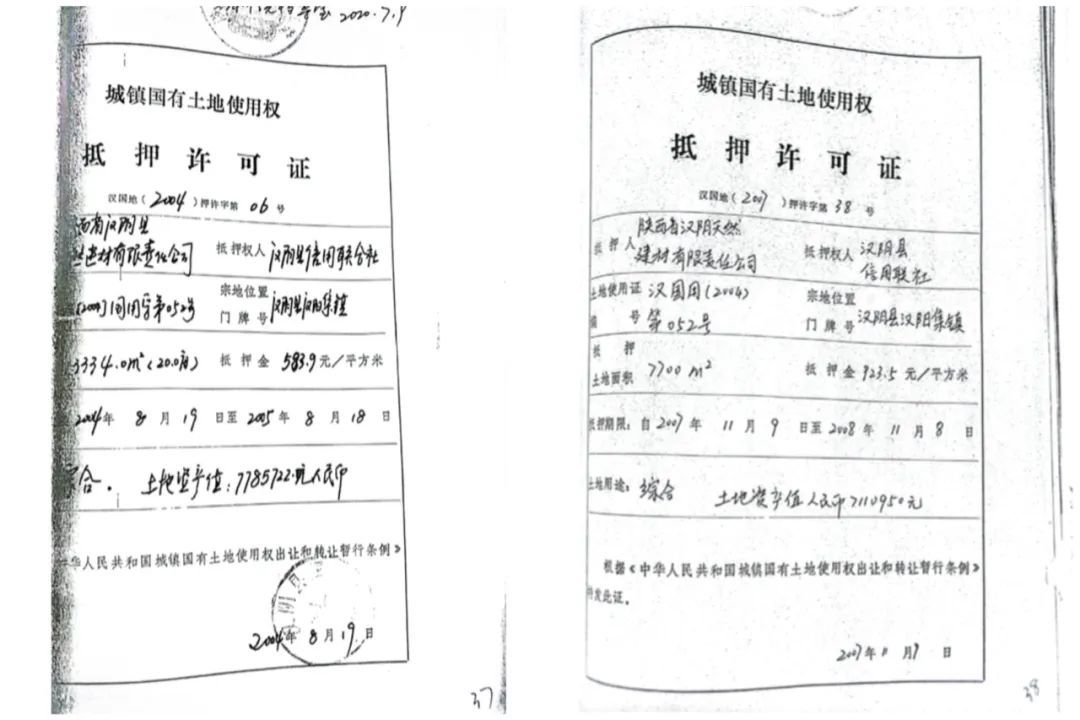 2020.7.9
城镇国有土地使用权
抵押许可证
汉国地(2004)押许字第06号
西省汉阴县
建材有限责任公司 抵押权人 汉阴县信用联合社
(2004)国用字第052号 宗地位置 门牌号 汉阴县汉阳集镇
3334.0m²(20.0亩) 抵押金 583.9元/平方米
2004年8月19日至2005年8月18日
综合. 土地资产值:7785722.元人民币
中华人民共和国城镇国有土地使用权出让和转让暂行条例》
2004年8月19日
37
城镇国有土地使用权
抵押许可证
汉国地(2007)押许字第38号
抵押人 陕西省汉阴天然建材有限责任公司 抵押权人 汉阴县信用联社
土地使用证编号 汉国用(2004)第052号 宗地位置门牌号 汉阴县汉阳集镇
抵押土地面积 7700m² 抵押金 923.5元/平方米
抵押期限:自2007年11月9日至2008年11月8日
土地用途:综合 土地资产值人民币7110950元
根据《中华人民共和国城镇国有土地使用权出让和转让暂行条例》
特发此证。
2007年11月9日
38